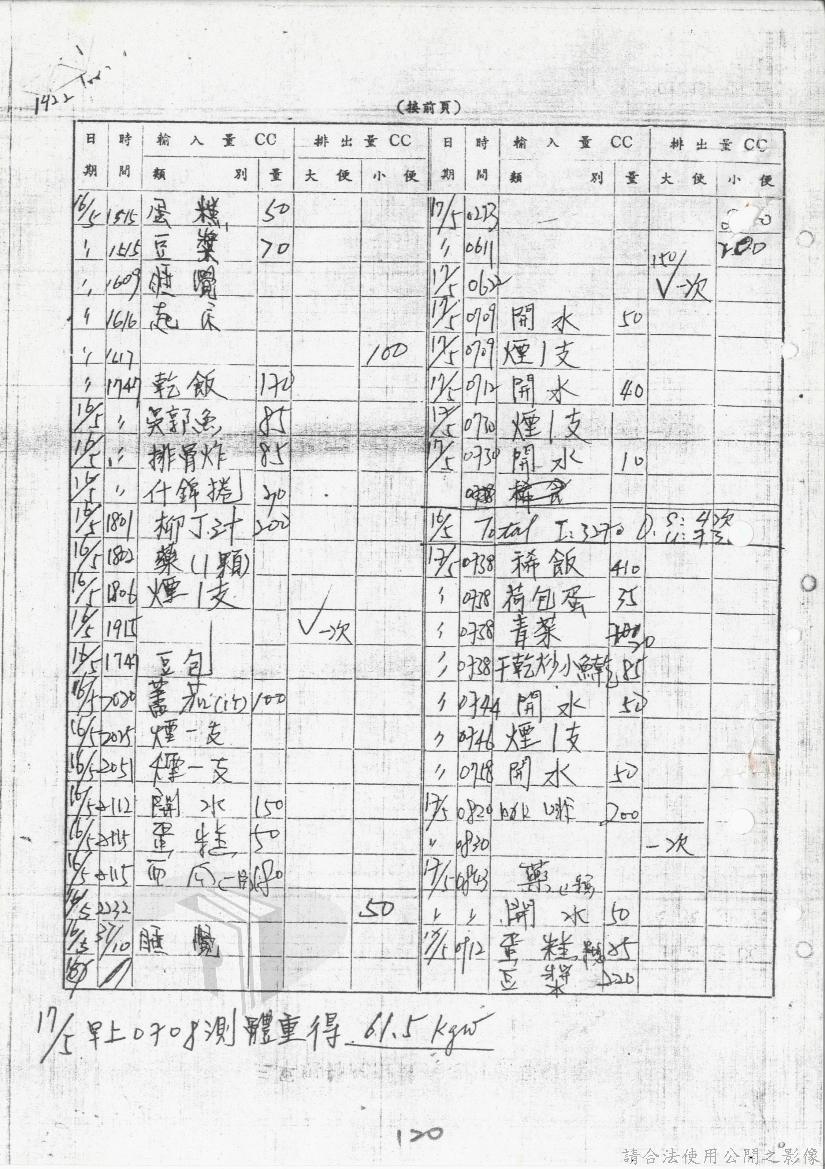 1422
(接前頁)
日期 時間 輸入量CC 類別 量 排出量CC 大便 小便
16/5 1515 蛋糕 50
〃 1515 豆漿 70
〃 1609 睡覺
〃 1616 起床
〃 1617 100
〃 1747 乾飯 170
16/5 〃 吳郭魚 85
16/5 〃 排骨炸 85
16/5 〃 什錦捲
16/5 1801 柳丁汁 200
16/5 1802 藥(1顆)
16/5 1806 煙1支
16/5 1915 ✓一次
16/5 1747 豆包
16/5 2020 100
16/5 2025 煙一支
16/5 2051 煙一支
16/5 2112 開水 150
16/5 2115 蛋糕 50
16/5 2115 西瓜
16/5 2232 50
16/5 睡覺
日期 時間 輸入量CC 類別 量 排出量CC 大便 小便
17/5 0213
〃 0611
17/5 0622 150/ ✓一次
17/5 0709 開水 50
17/5 0709 煙1支
17/5 0712 開水 40
17/5 0730 煙1支
17/5 0730 開水 10
16/5 Total I: 3270 O: S: 4次
17/5 0738 稀飯 410
〃 0738 荷包蛋 35
〃 0738 青菜 20
〃 0738 85
〃 0744 開水 50
〃 0746 煙1支
〃 0758 開水 50
17/5 0820 200
〃 0830 一次
17/5 0843 藥
〃 〃 開水 50
0912 蛋糕 85
豆漿 220
17/5 早上0708測體重得 61.5 kgw
120
請合法使用公開之影像